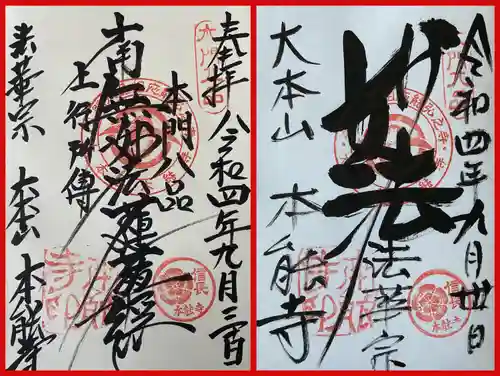 奉拝 令和四年九月三日
本門八品
南無妙法蓮華経
上行所傳
法華宗 大本山 本能寺
信長
本能寺
令和四年九月廿日
妙法
法華宗
大本山 本能寺
信長
本能寺